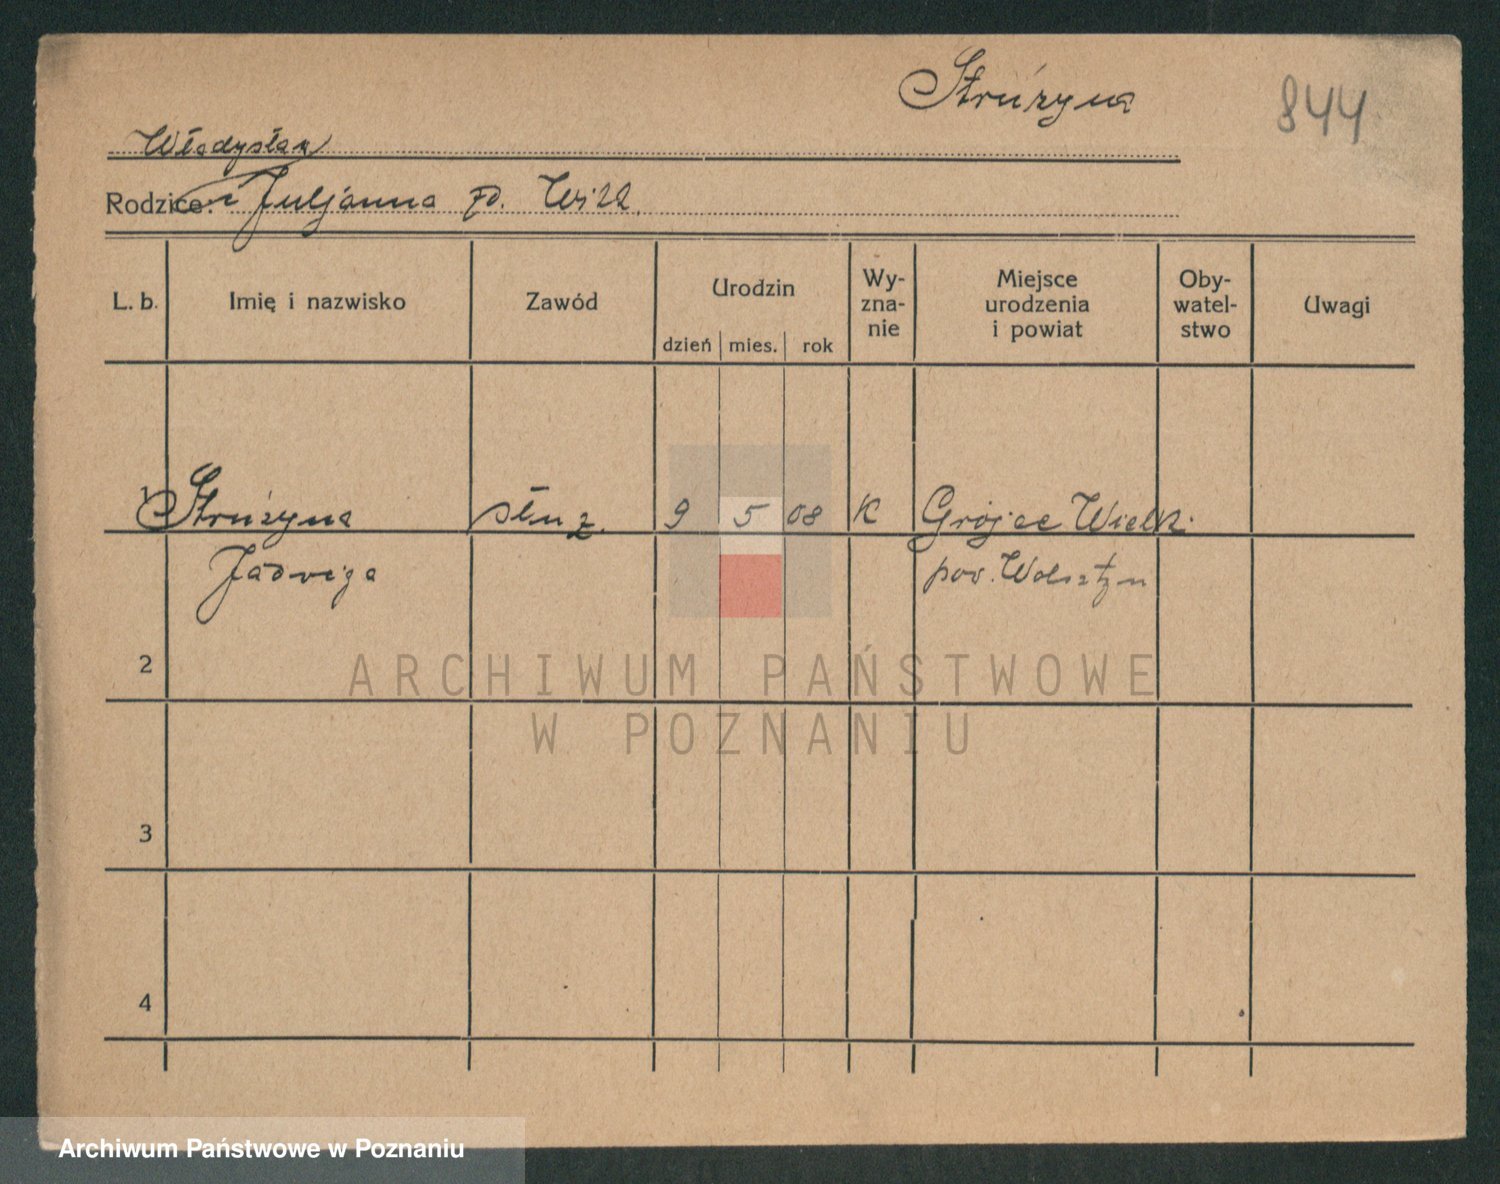 Strużyna
844
Władysław
Rodzice: i Juljanna zd.
L. b.
Imię i nazwisko
Zawód
Urodzin
dzień mies. rok
Wy-
zna-
nie
Miejsce
urodzenia
i powiat
Oby-
watel-
stwo
Uwagi
1 Strużyna służ. 9 5 08 K Grójec Wielk.
Jadwiga pow. Wolsztyn
2
3
4
ARCHIWUM PAŃSTWOWE
W POZNANIU
Archiwum Państwowe w Poznaniu